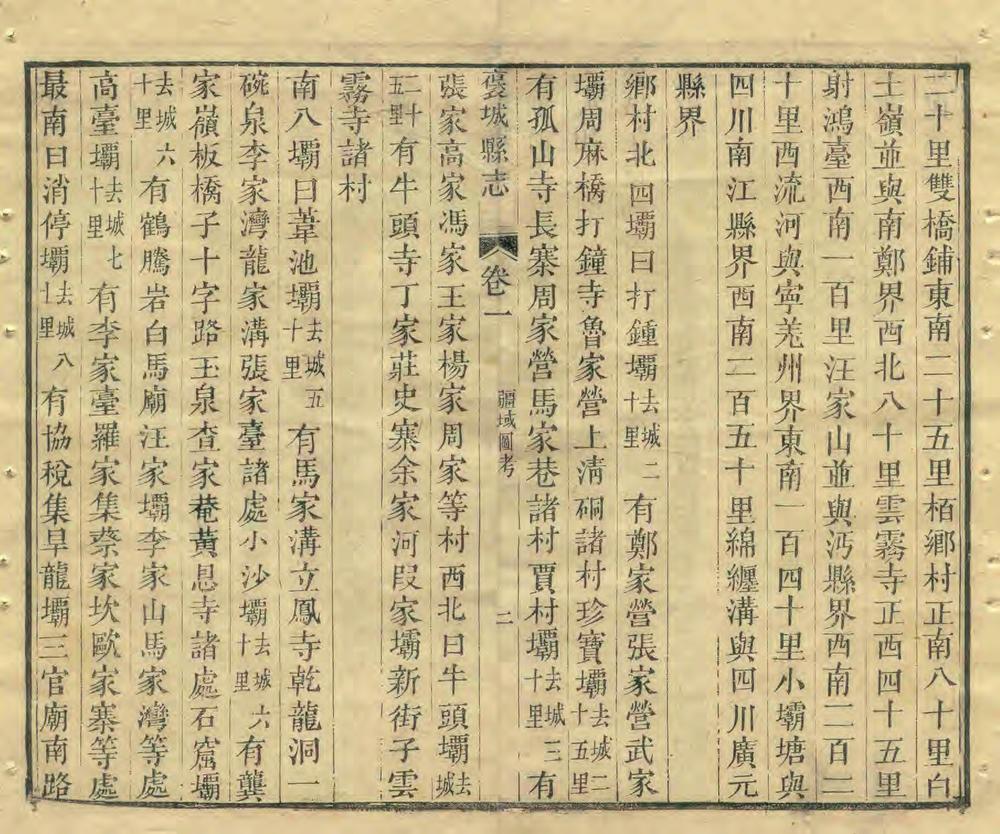 二十里雙橋鋪東南二十五里栢鄉村正南八十里白
土嶺並與南鄭界西北八十里雲霧寺正西四十五里
射鴻臺西南一百里汪家山並與沔縣界西南二百二
十里西流河與寧羌州界東南一百四十里小壩塘與
四川南江縣界西南二百五十里綿纏溝與四川廣元
縣界
鄉村北四壩曰打鍾壩去城二十里有鄭家營張家營武家
壩周麻橋打鐘寺魯家營上清硐諸村珍寶壩去城二十五里
有孤山寺長寨周家營馬家巷諸村賈村壩去城三十里有
褒城縣志 卷一 疆域圖考 二
張家高家馮家王家楊家周家等村西北曰牛頭壩去城
二十五里有牛頭寺丁家莊史寨余家河段家壩新街子雲
霧寺諸村
南八壩曰葦池壩去城五十里有馬家溝立鳳寺乾龍洞一
碗泉李家灣龍家溝張家臺諸處小沙壩去城六十里有龔
家嶺板橋子十字路玉泉查家菴黃恳寺諸處石窩壩
去城六十里有鶴騰岩白馬廟汪家壩李家山馬家灣等處
高臺壩去城七十里有李家臺羅家集蔡家坎歐家寨等處
最南曰消停壩去城八十里有協稅集旱龍壩三官廟南路